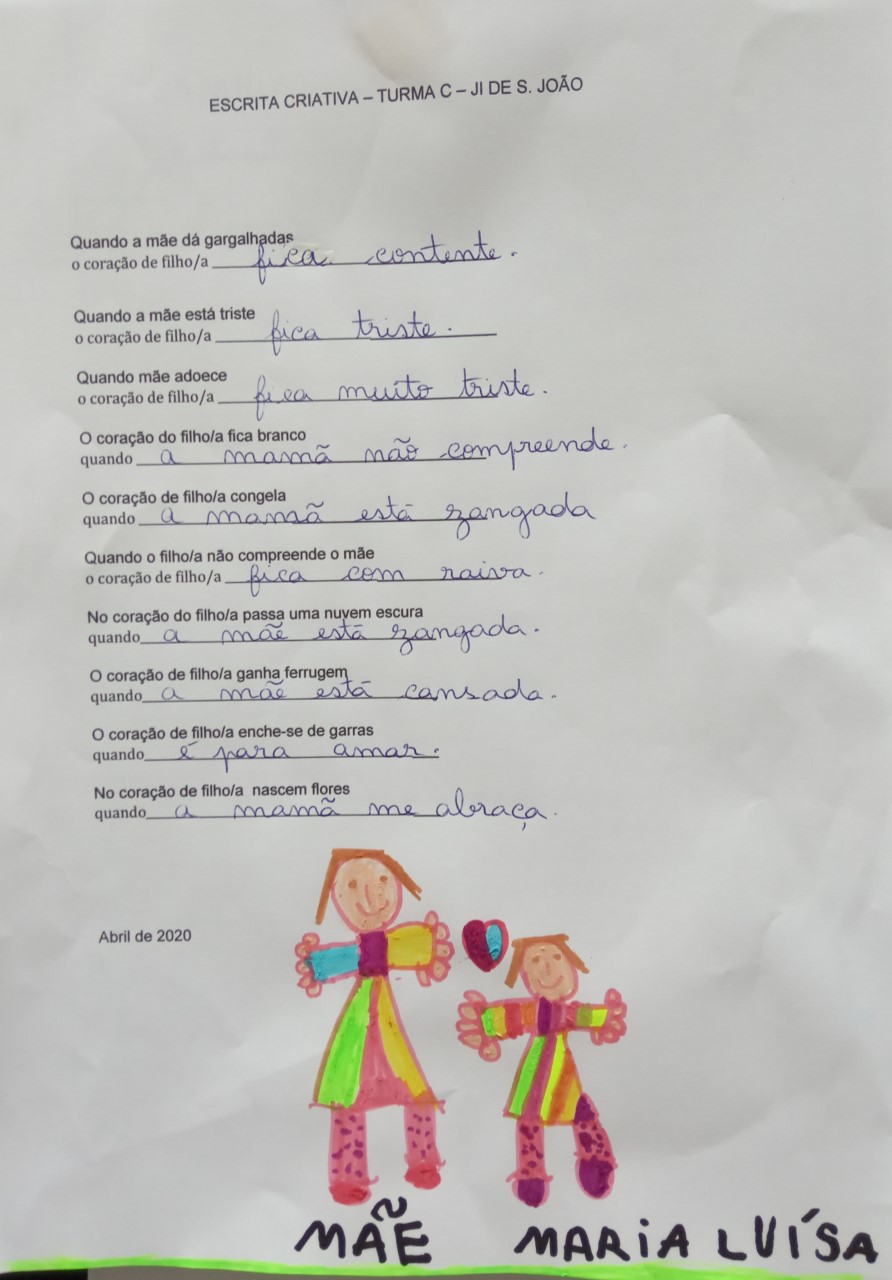 ESCRITA CRIATIVA – TURMA C – JI DE S. JOÃO
Quando a mãe dá gargalhadas
o coração de filho/a fica contente.
Quando a mãe está triste
o coração de filho/a fica triste.
Quando mãe adoece
o coração de filho/a fica muito triste.
O coração do filho/a fica branco
quando a mamã não compreende.
O coração de filho/a congela
quando a mamã está zangada
Quando o filho/a não compreende o mãe
o coração de filho/a fica com raiva.
No coração do filho/a passa uma nuvem escura
quando a mãe está zangada.
O coração de filho/a ganha ferrugem
quando a mãe está cansada.
O coração de filho/a enche-se de garras
quando é para amar.
No coração de filho/a nascem flores
quando a mamã me abraça.
Abril de 2020
MÃE MARiA LUÍSA